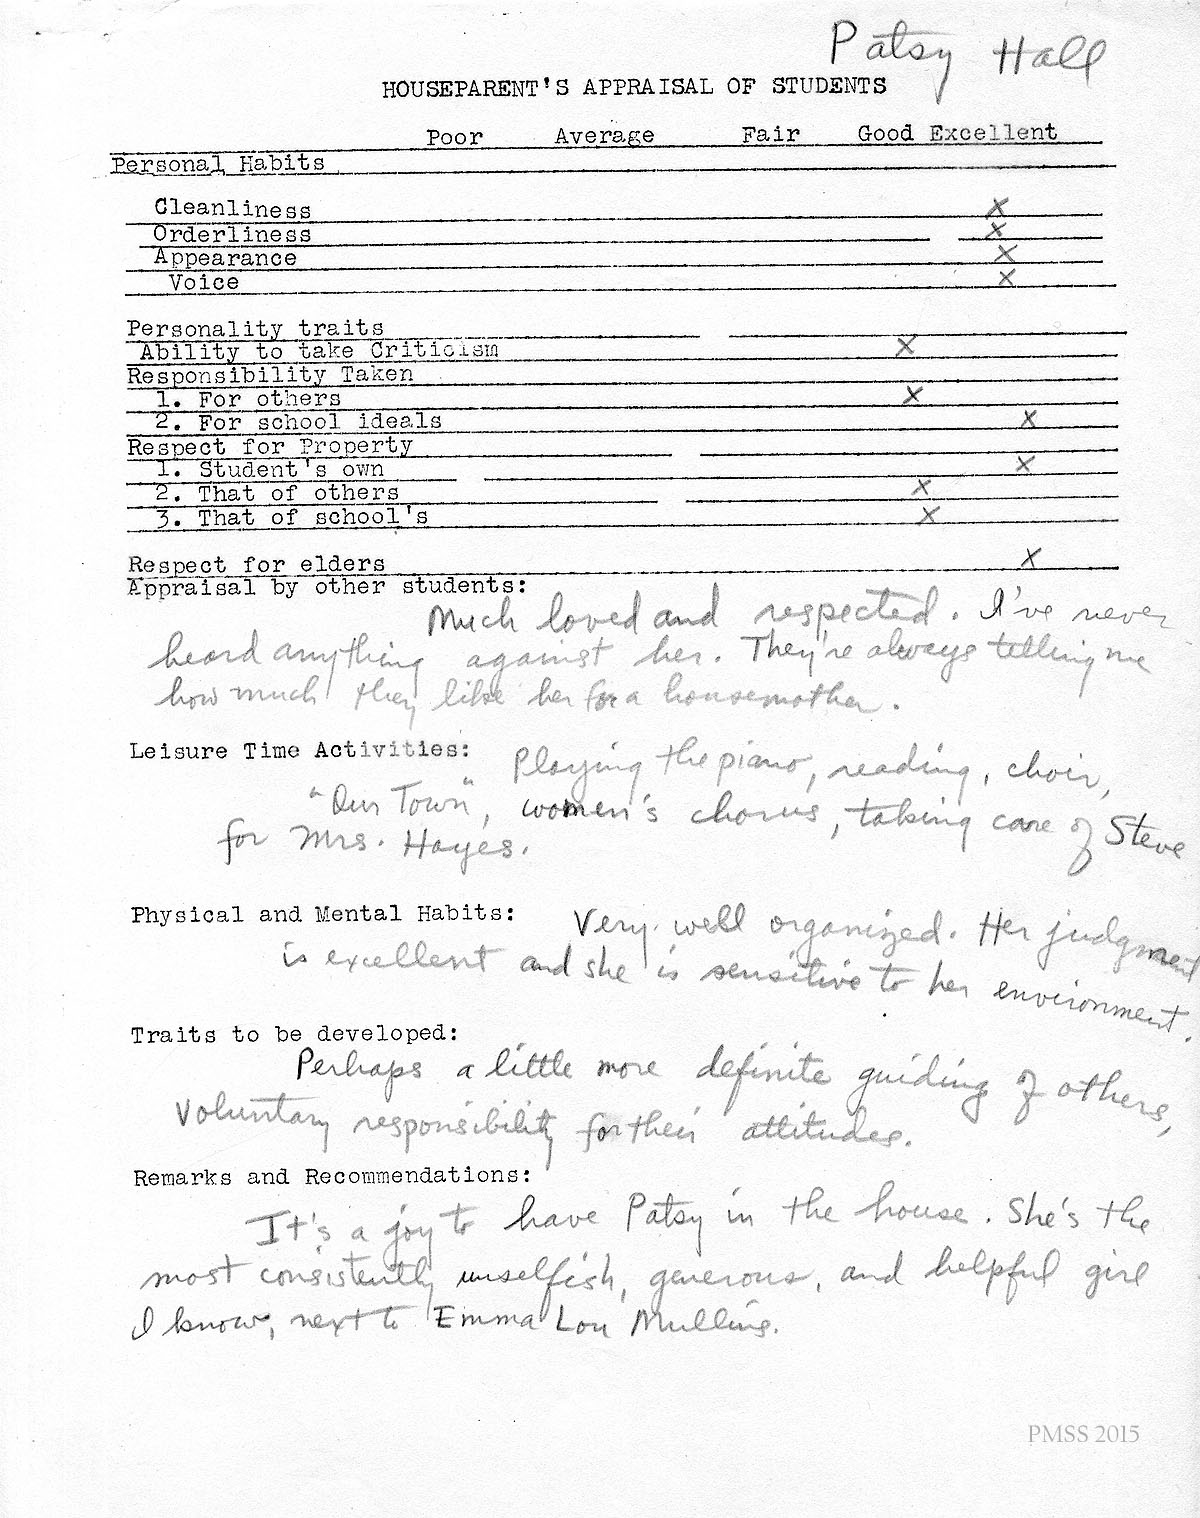 Patsy Hall
HOUSEPARENT'S APPRAISAL OF STUDENTS
Poor Average Fair Good Excellent
Personal Habits
Cleanliness X
Orderliness X
Appearance X
Voice X
Personality traits
Ability to take Criticism X
Responsibility Taken
1. For others X
2. For school ideals X
Respect for Property
1. Student's own X
2. That of others X
3. That of school's X
Respect for elders X
Appraisal by other students:
Much loved and respected. I've never
heard anything against her. They're always telling me
how much they like her for a housemother.
Leisure Time Activities: Playing the piano, reading, choir,
"Our Town", women's chorus, taking care of Steve
for Mrs. Hayes.
Physical and Mental Habits: Very well organized. Her judgment
is excellent and she is sensitive to her environment.
Traits to be developed:
Perhaps a little more definite guiding of others,
voluntary responsibility for their attitudes.
Remarks and Recommendations:
It's a joy to have Patsy in the house. She's the
most consistently unselfish, generous, and helpful girl
I know, next to Emma Lou Mullins.
PMSS 2015